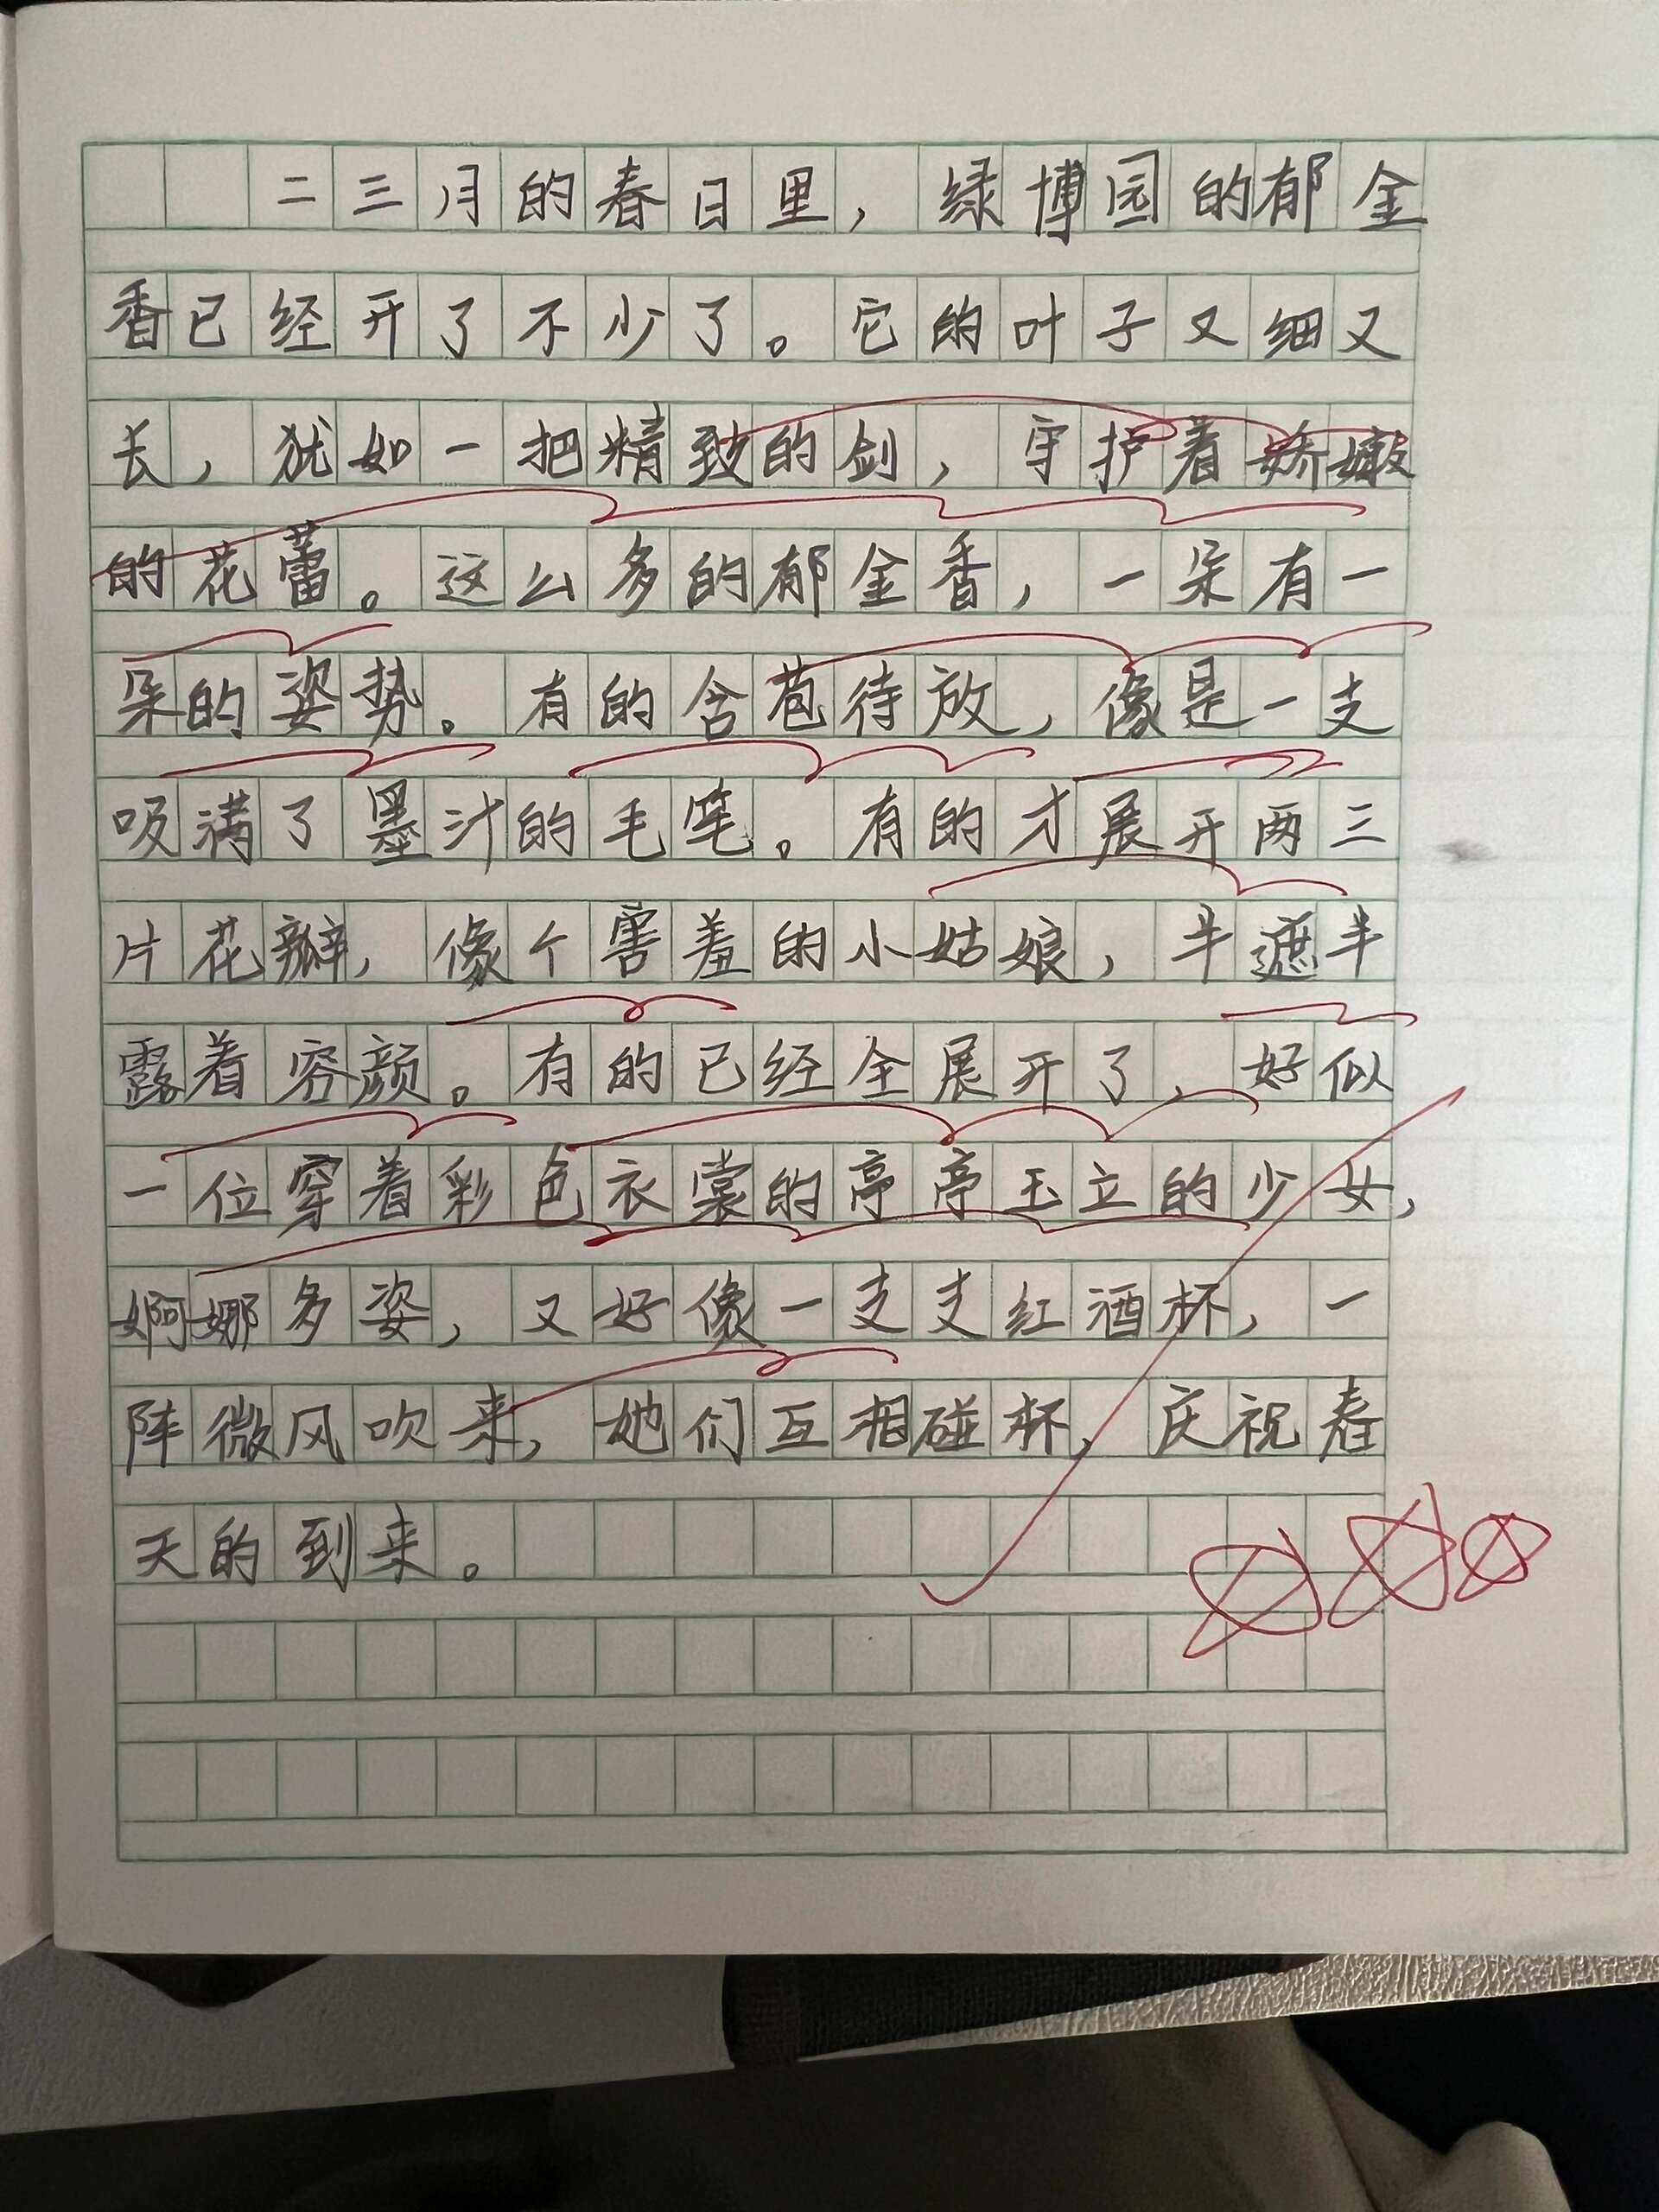 二三月的春日里，绿博园的郁金
香已经开了不少了。它的叶子又细又
长，犹如一把精致的剑，守护着娇嫩
的花蕾。这么多的郁金香，一朵有一
朵的姿势。有的含苞待放，像是一支
吸满了墨汁的毛笔。有的才展开两三
片花瓣，像个害羞的小姑娘，半遮半
露着容颜。有的已经全展开了，好似
一位穿着彩色衣裳的亭亭玉立的少女，
婀娜多姿，又好像一支支红酒杯，一
阵微风吹来，她们互相碰杯，庆祝春
天的到来。